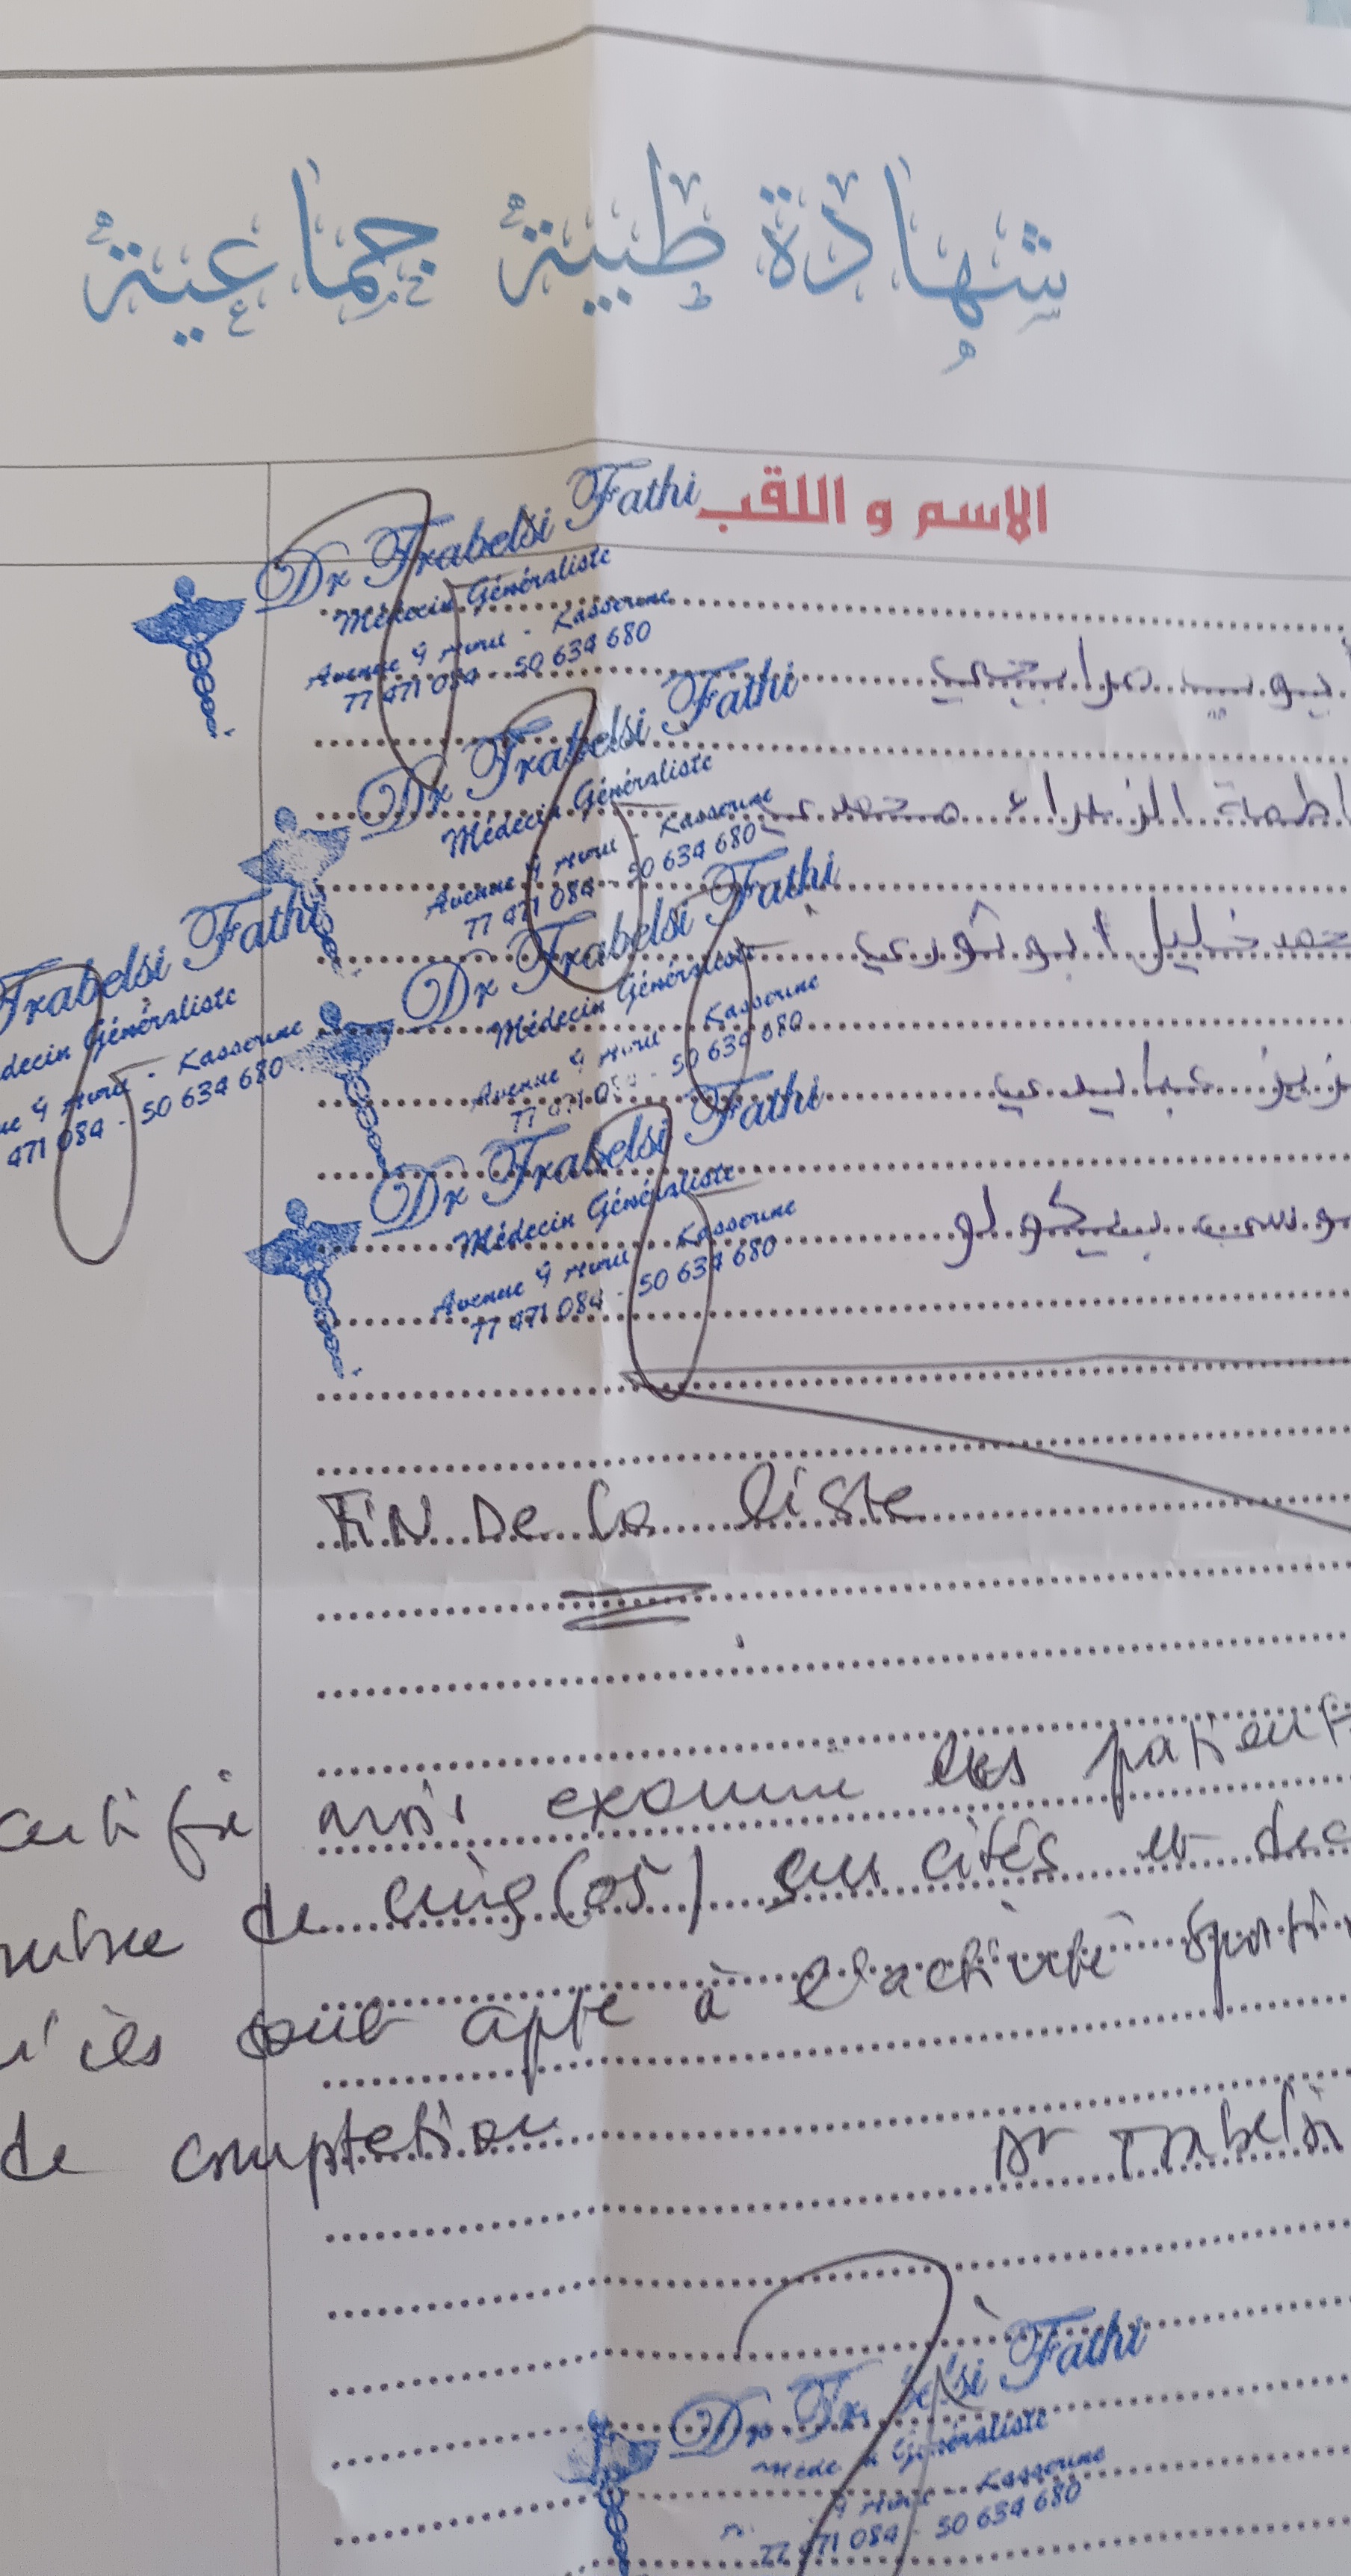 شهادة طبية جماعية
الاسم و اللقب
Dr Trabelsi Fathi
Médecin Généraliste
Avenue 9 Avril - Kasserine
77 471 084 - 50 634 680
يوب مرابحي
Dr Trabelsi Fathi
Médecin Généraliste
Avenue 9 Avril - Kasserine
77 471 084 - 50 634 680
اطمة الزهراء محمدي
Trabelsi Fathi
decin Généraliste
ue 9 Avril - Kasserine
471 084 - 50 634 680
Dr Trabelsi Fathi
Médecin Généraliste
Avenue 9 Avril - Kasserine
77 471 084 - 50 634 680
حمد خليل
زيز عبايدي
Dr Trabelsi Fathi
Médecin Généraliste
Avenue 9 Avril - Kasserine
77 471 084 - 50 634 680
FIN De la liste
certifie avoir examiné les patient
de cinq (05) sus cités et dec
'ils sont apte à l'activité sporti
de comptetion
Dr Trabelsi
Dr Trabelsi Fathi
Médecin Généraliste
9 Avril - Kasserine
77 471 084 - 50 634 680